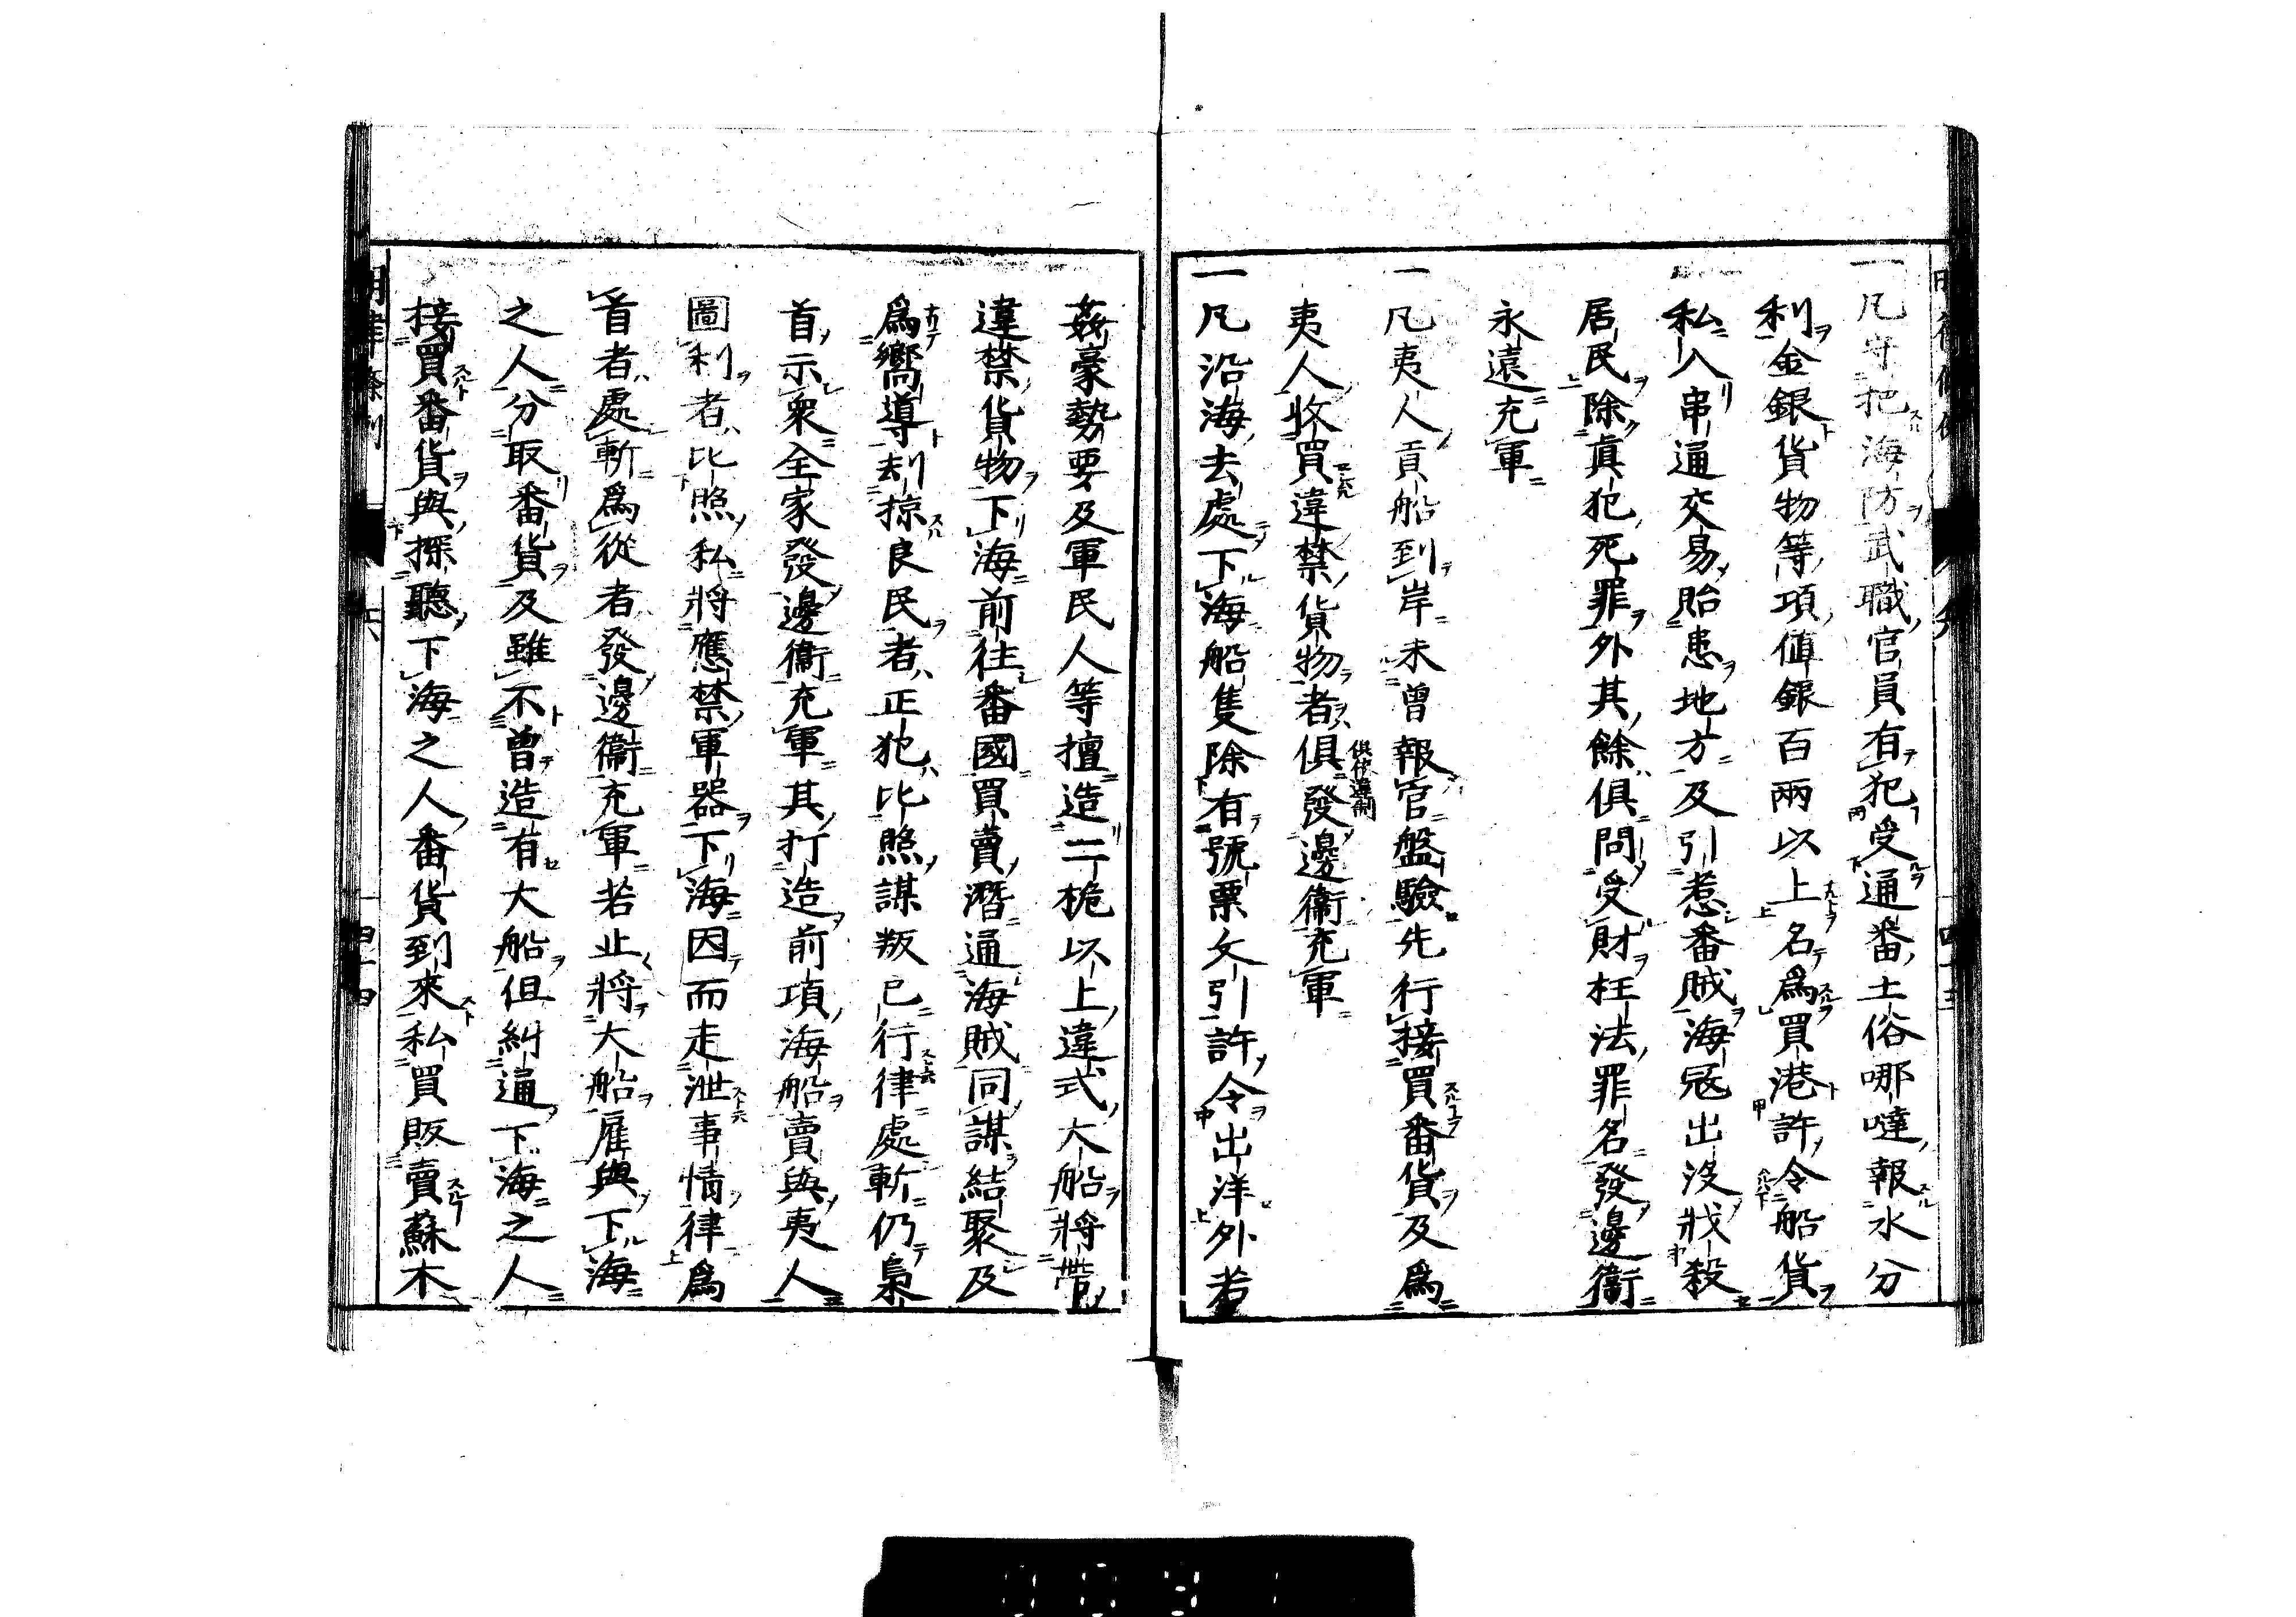 一凡守把海防武職官員有犯受通番土俗哪噠報水分
利金銀貨物等項値銀百兩以上名爲買港許令船貨
私入串通交易貽患地方及引惹番賊海寇出没戕殺
居民除眞犯死罪外其餘俱問受財枉法罪名發邊衞
永遠充軍
一凡夷人貢船到岸未曾報官盤驗先行接買番貨及爲
夷人收買違禁貨物者俱發邊衞充軍
供作違制
一凡沿海去處下海船隻除有號票文引許令出洋外若
姦豪勢要及軍民人等擅造二桅以上違式大船將帶
違禁貨物下海前往番國買賣潛通海賊同謀結聚及
爲嚮導刦掠良民者正犯比照謀叛已行律處斬仍梟
首示衆全家發邊衞充軍其打造前項海船賣與夷人
圖利者比照私將應禁軍器下海因而走泄事情律爲
首者處斬爲從者發邊衞充軍若止將大船雇與下海
之人分取番貨及雖不曾造有大船但糾通下海之人
接買番貨與探聽下海之人番貨到來私買販賣蘇木
四十四